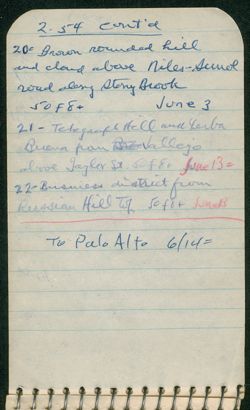 2.54 cont'd
20= Brown rounded hill
and cloud above Niles-Sunol
road along Stony Brook
50 f8+ June 3
21- Telegraph Hill and Yerba
Buena from Vallejo
above Taylor St. 50 f8+ June 13=
22- Business district from
Russian Hill 50 f8+ June 13
To Palo Alto 6/14=